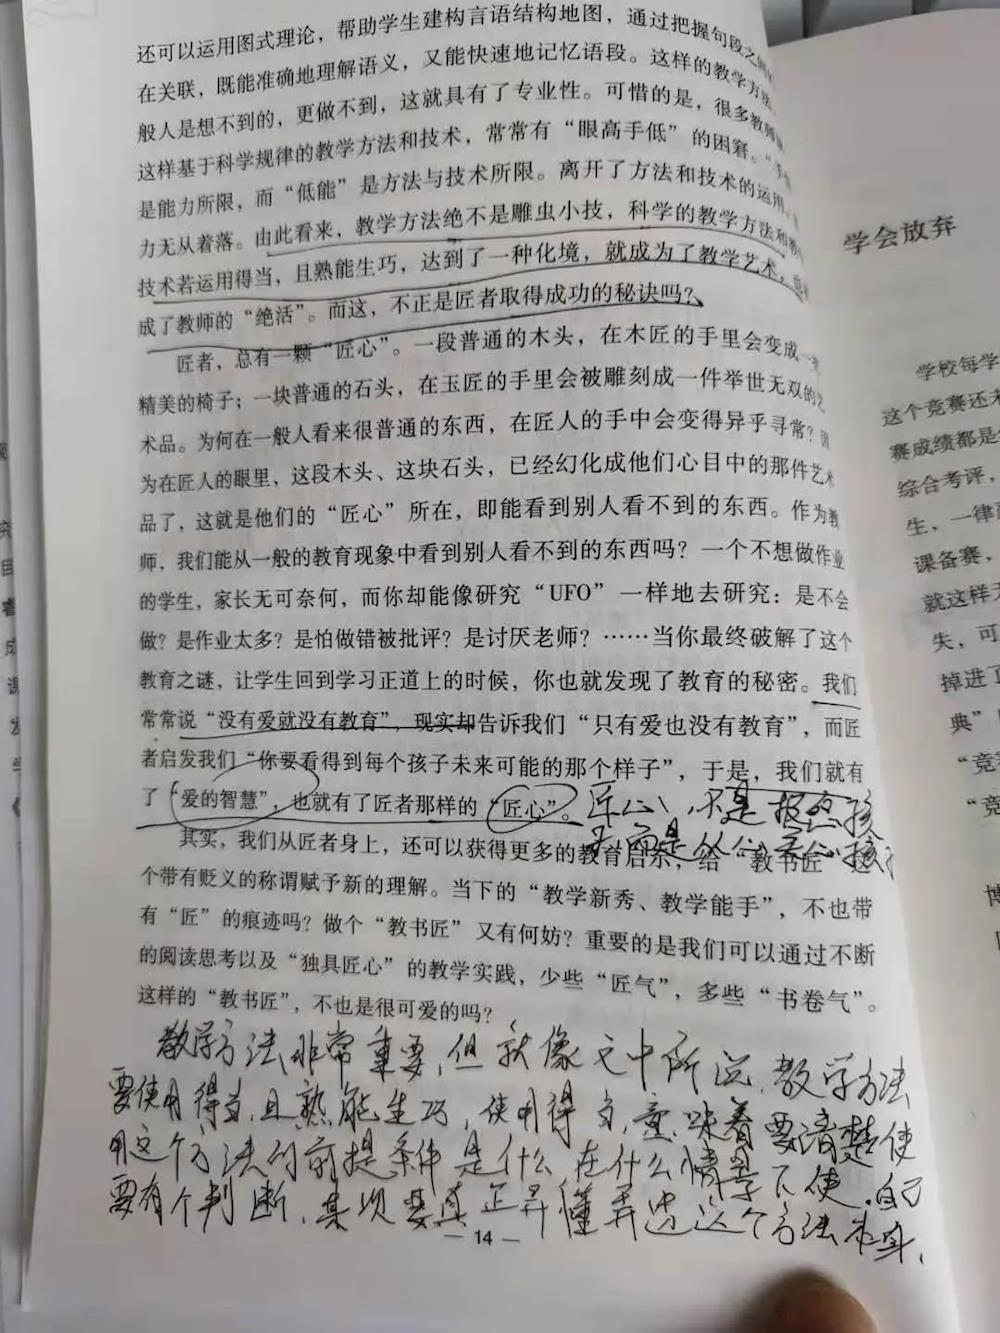 还可以运用图式理论，帮助学生建构言语结构地图，通过把握句段之间的
在关联，既能准确地理解语义，又能快速地记忆语段。这样的教学方法，
般人是想不到的，更做不到，这就具有了专业性。可惜的是，很多教师
这样基于科学规律的教学方法和技术，常常有“眼高手低”的困窘。“手
是能力所限，而“低能”是方法与技术所限。离开了方法和技术的运用，
力无从着落。由此看来，教学方法绝不是雕虫小技，科学的教学方法和教
技术若运用得当，且熟能生巧，达到了一种化境，就成为了教学艺术，
成了教师的“绝活”。而这，不正是匠者取得成功的秘诀吗？
匠者，总有一颗“匠心”。一段普通的木头，在木匠的手里会变成一
精美的椅子；一块普通的石头，在玉匠的手里会被雕刻成一件举世无双的艺
术品。为何在一般人看来很普通的东西，在匠人的手中会变得异乎寻常？因
为在匠人的眼里，这段木头、这块石头，已经幻化成他们心目中的那件艺术
品了，这就是他们的“匠心”所在，即能看到别人看不到的东西。作为教
师，我们能从一般的教育现象中看到别人看不到的东西吗？一个不想做作业
的学生，家长无可奈何，而你却能像研究“UFO”一样地去研究：是不会
做？是作业太多？是怕做错被批评？是讨厌老师？……当你最终破解了这个
教育之谜，让学生回到学习正道上的时候，你也就发现了教育的秘密。我们
常常说“没有爱就没有教育”，现实却告诉我们“只有爱也没有教育”，而匠
者启发我们“你要看得到每个孩子未来可能的那个样子”，于是，我们就有
了“爱的智慧”，也就有了匠者那样的“匠心”。匠心，不是 孩
而是从心 孩子
其实，我们从匠者身上，还可以获得更多的教育启示，给“教书匠”这
个带有贬义的称谓赋予新的理解。当下的“教学新秀、教学能手”，不也带
有“匠”的痕迹吗？做个“教书匠”又有何妨？重要的是我们可以通过不断
的阅读思考以及“独具匠心”的教学实践，少些“匠气”，多些“书卷气”。
这样的“教书匠”，不也是很可爱的吗？
教学方法非常重要，但就像文中所说，教学方法
要使用得当，且熟能生巧，使用得当，意味着要清楚使
用这个方法的前提条件是什么，在什么情景下使，自己
要有个判断，其次要真正弄懂弄透这个方法本身，
— 14 —
学会放弃
学校每学
这个竞赛还未
赛成绩都是
综合考评，
生，一律
课备赛，
就这样无
失，可
掉进了
典”
“竞
“竞
博